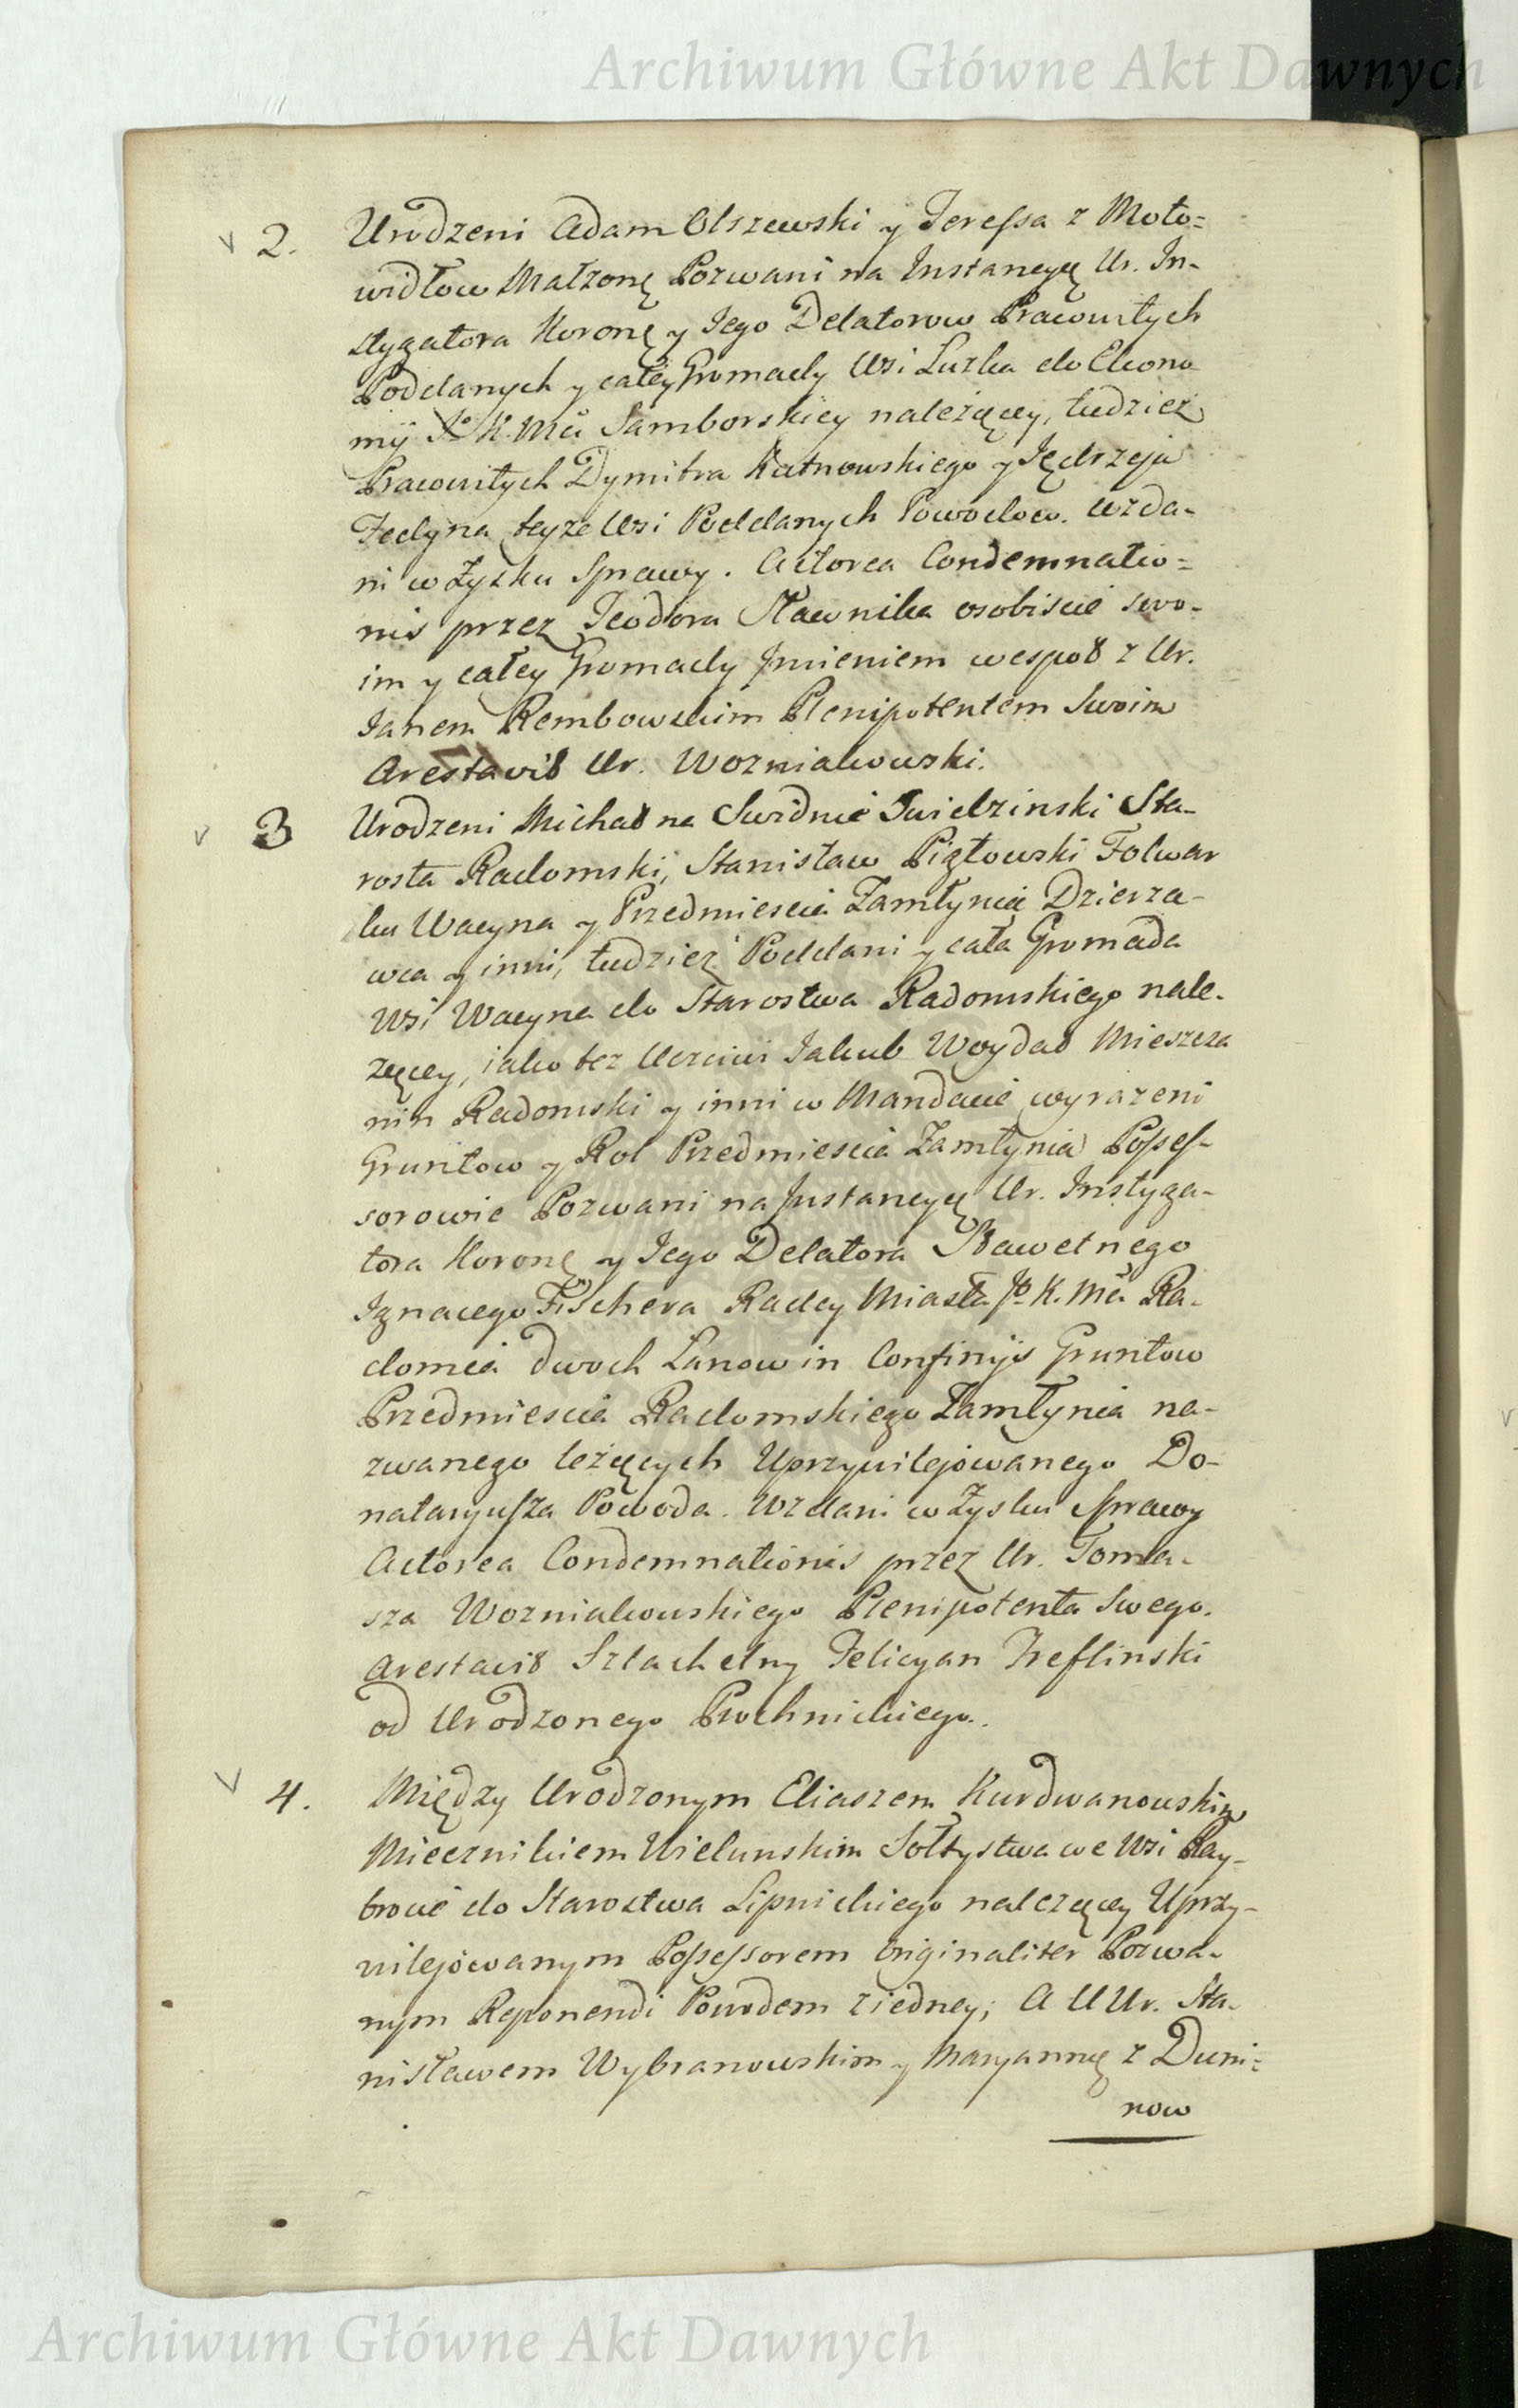 Archiwum Główne Akt Dawnych
2. Urodzeni Adam Olszewski y Teressa z Moto=
widłow Małżonę Pozwani na Instancyę Ur. In-
stygatora Koronę y Jego Delatorow Pracowitych
Poddanych y całey Gromady Wsi Luzka do Ekono
mij Jo K. Mci Samborskiey należącey, tudzież
Pracowitych Dymitra Katnowskiego y Jędrzeja
Fedyna teyże Wsi Poddanych Powodow. wzda-
ni w Zysku Sprawy. Actorea Condemnatio=
nis przez Teodora Sławnika osobiscie swo-
im y całey Gromady Jmieniem wespoł z Ur.
Janem Rembowskim Plenipotentem Swoim
Arestavił Ur. Wozniakowski.
3 Urodzeni Michał na Swidnie Swidzinski Sta-
rosta Radomski, Stanisław Piątowski Folwar
ku Wacyna y Przedmiescia Zamłynia Dzierza-
wca y inni, tudzież Poddani y cała Gromada
Wsi Wacyna do Starostwa Radomskiego nale-
zęcey, iako tez Uczciwi Jakub Woydał Mieszcza
nin Radomski y inni w Mandacie wyrazeni
Gruntow y Rol Przedmiescia Zamłynia Posses-
sorowie Pozwani na Jnstancyę Ur. Instyga-
tora Koronę y Jego Delatora Sławetnego
Ignacego Fischera Radcy Miasta Jo K. Mci Ra-
domia dwoch Lanow in Confinijs Gruntow
Przedmiescia Radomskiego Zamłynia na-
zwanego leżących Uprzywilejowanego Do-
nataryusza Powoda. wzdani w Zysku Sprawy
Actorea Condemnationis przez Ur. Toma-
sza Wozniakowskiego Plenipotenta Swego.
Arestavił Szlachetny Felicyan Treflinski
od Urodzonego Prochnickiego.
4. Między Urodzonym Eliaszem Kurdwanowskim
Miecznikiem Wielunskim Sołtystwa we Wsi Ray-
brocie do Starostwa Lipnickiego nalezącey Uprzy-
wilejowanym Possessorem originaliter Pozwa-
nym Reponendi Powodem ziedney; A UUr. Sta-
nisławem Wybranowskim y Maryannę z Duni=
now
Archiwum Główne Akt Dawnych